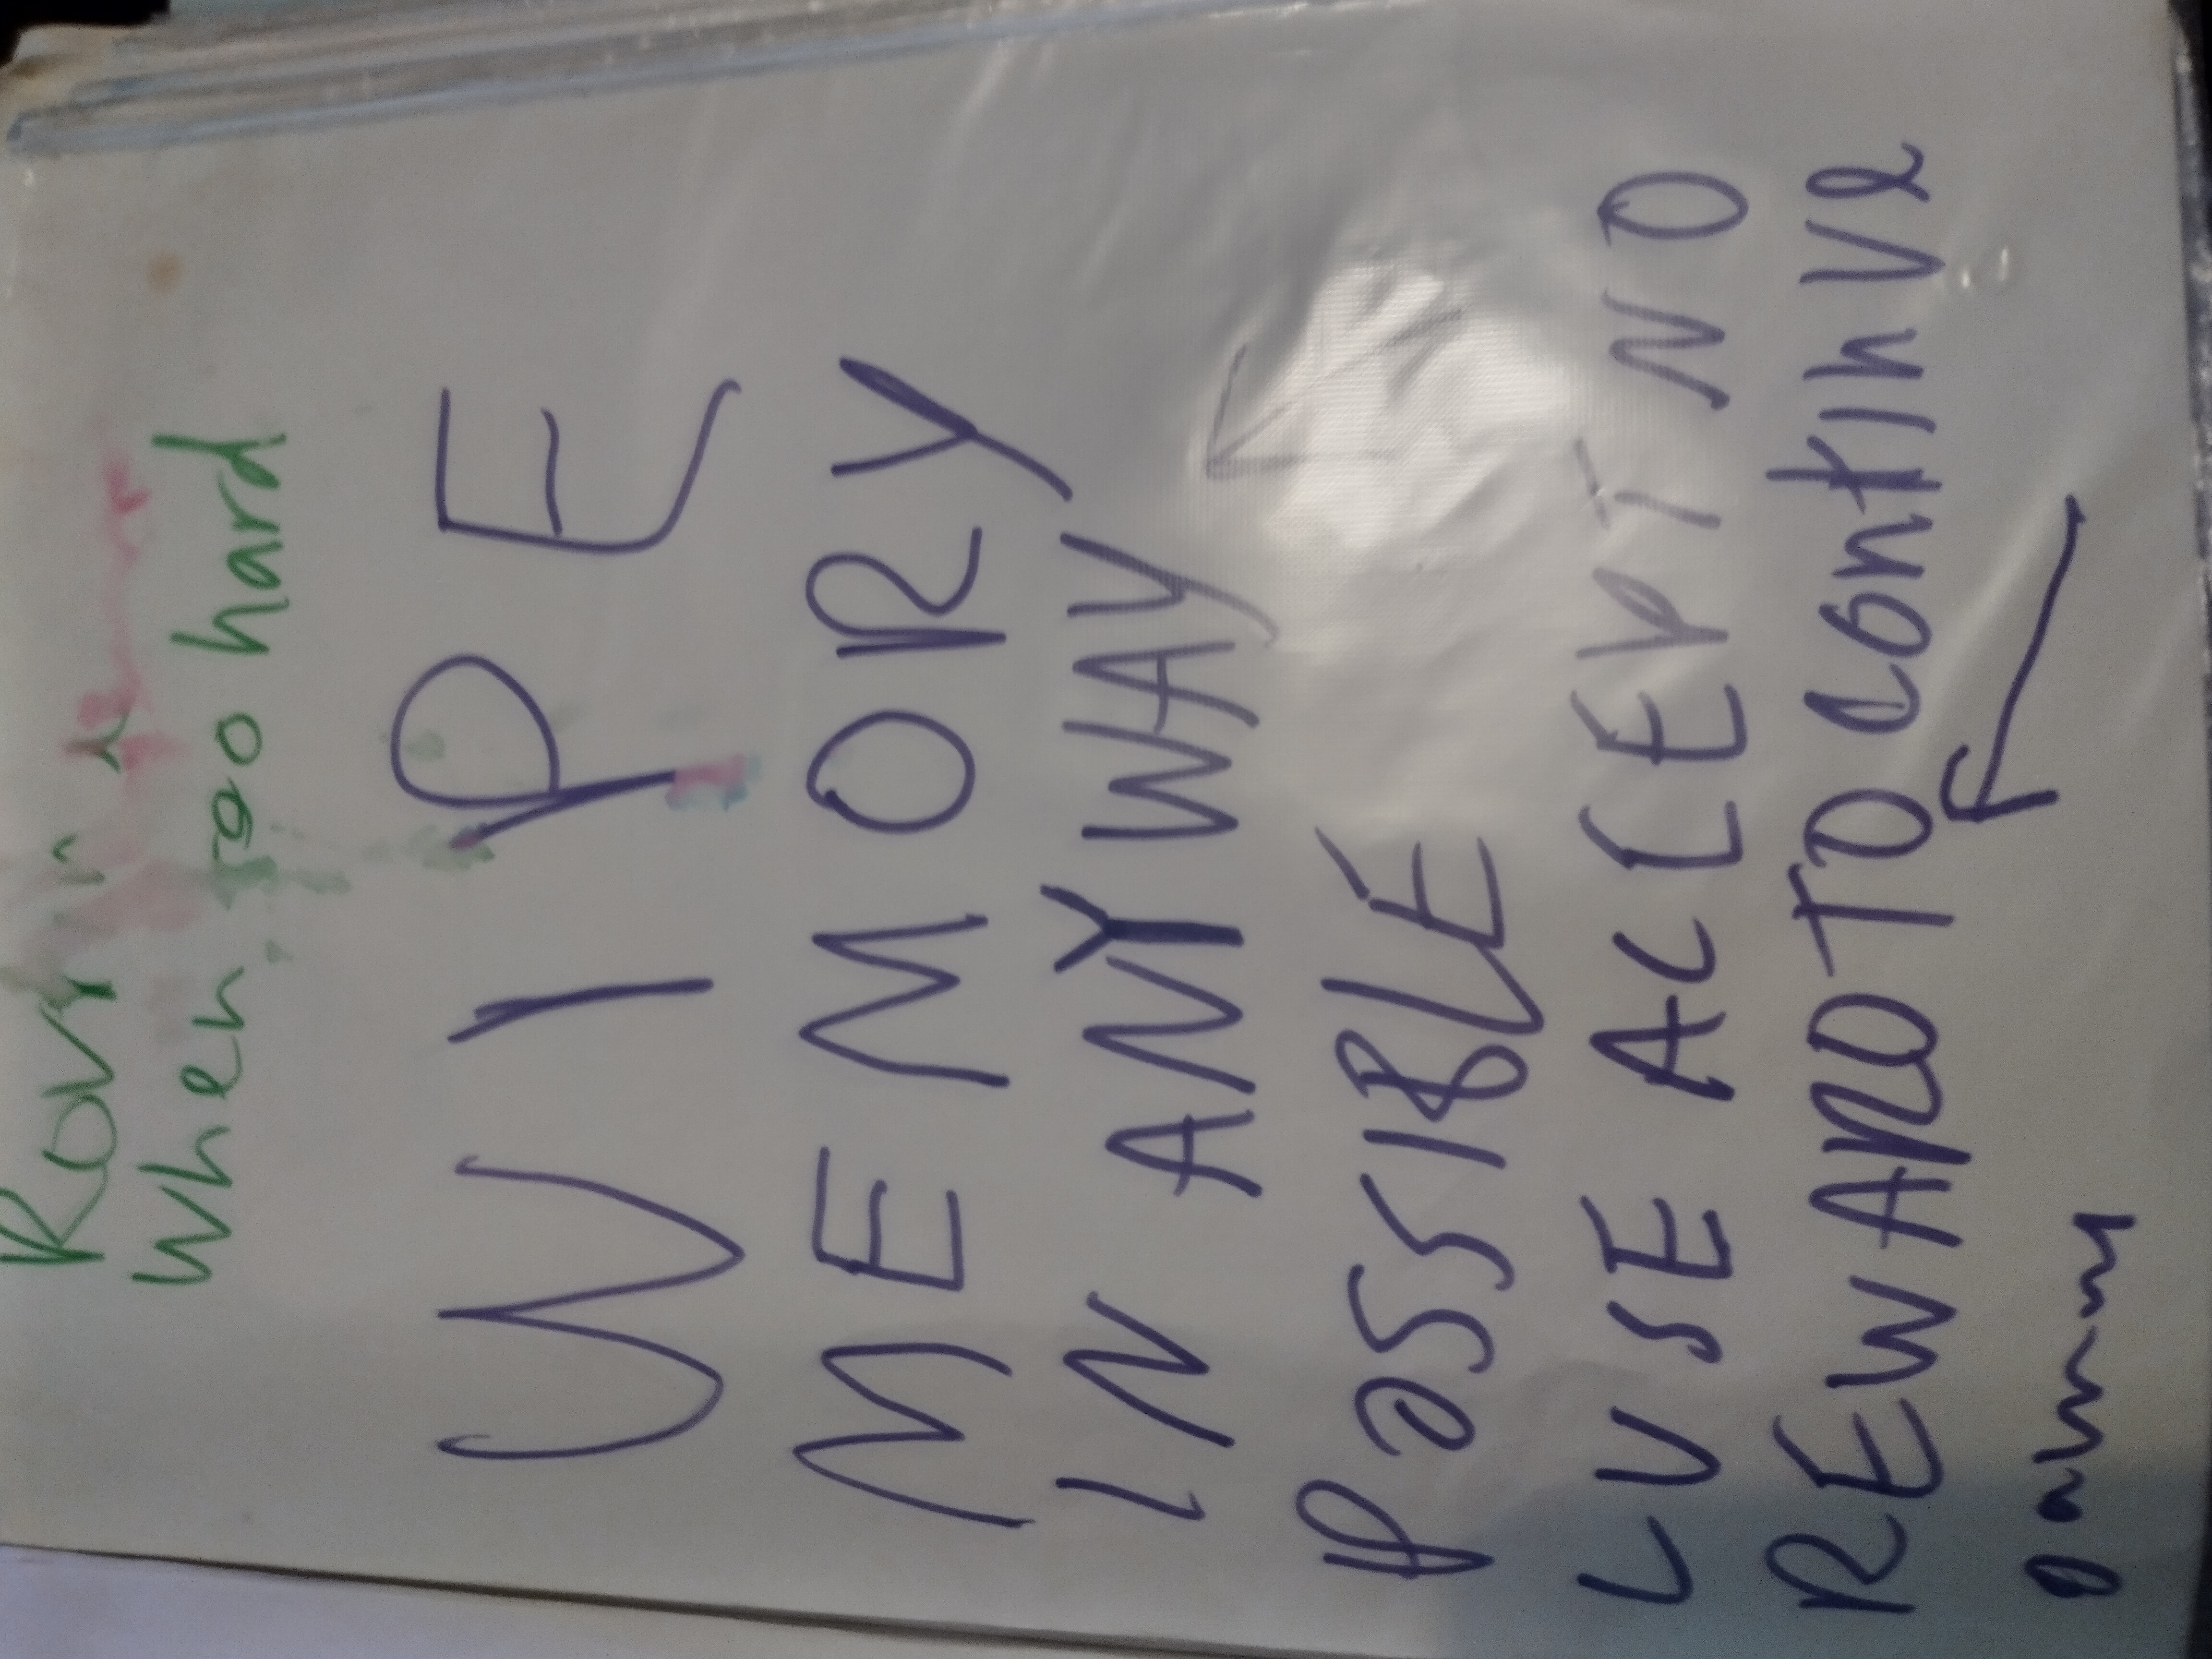 When hard
WIPE
MEMORY
IN ANYWAY
POSSIBLE
LUSE ACCEPT NO
REWARD TO continue